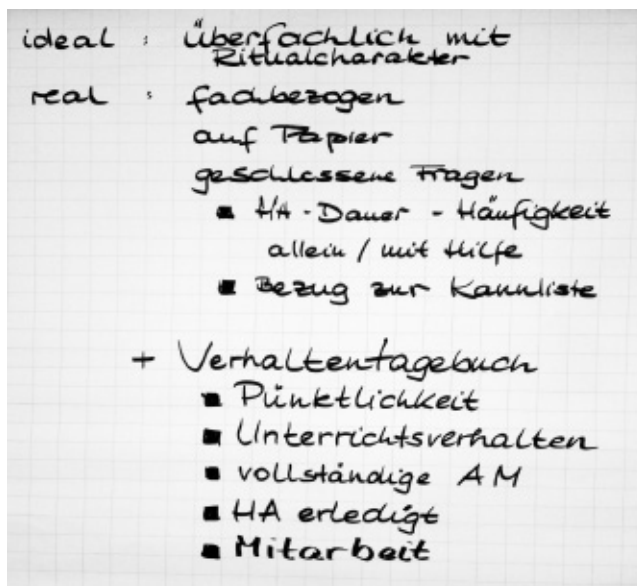 ideal : Überfachlich mit
Ritualcharakter
real : fachbezogen
auf Papier
geschlossene Fragen
■ HA - Dauer - Häufigkeit
allein / mit Hilfe
■ Bezug zur Kannliste
+ Verhaltentagebuch
■ Pünktlichkeit
■ Unterrichtsverhalten
■ vollständige AM
■ HA erledigt
■ Mitarbeit